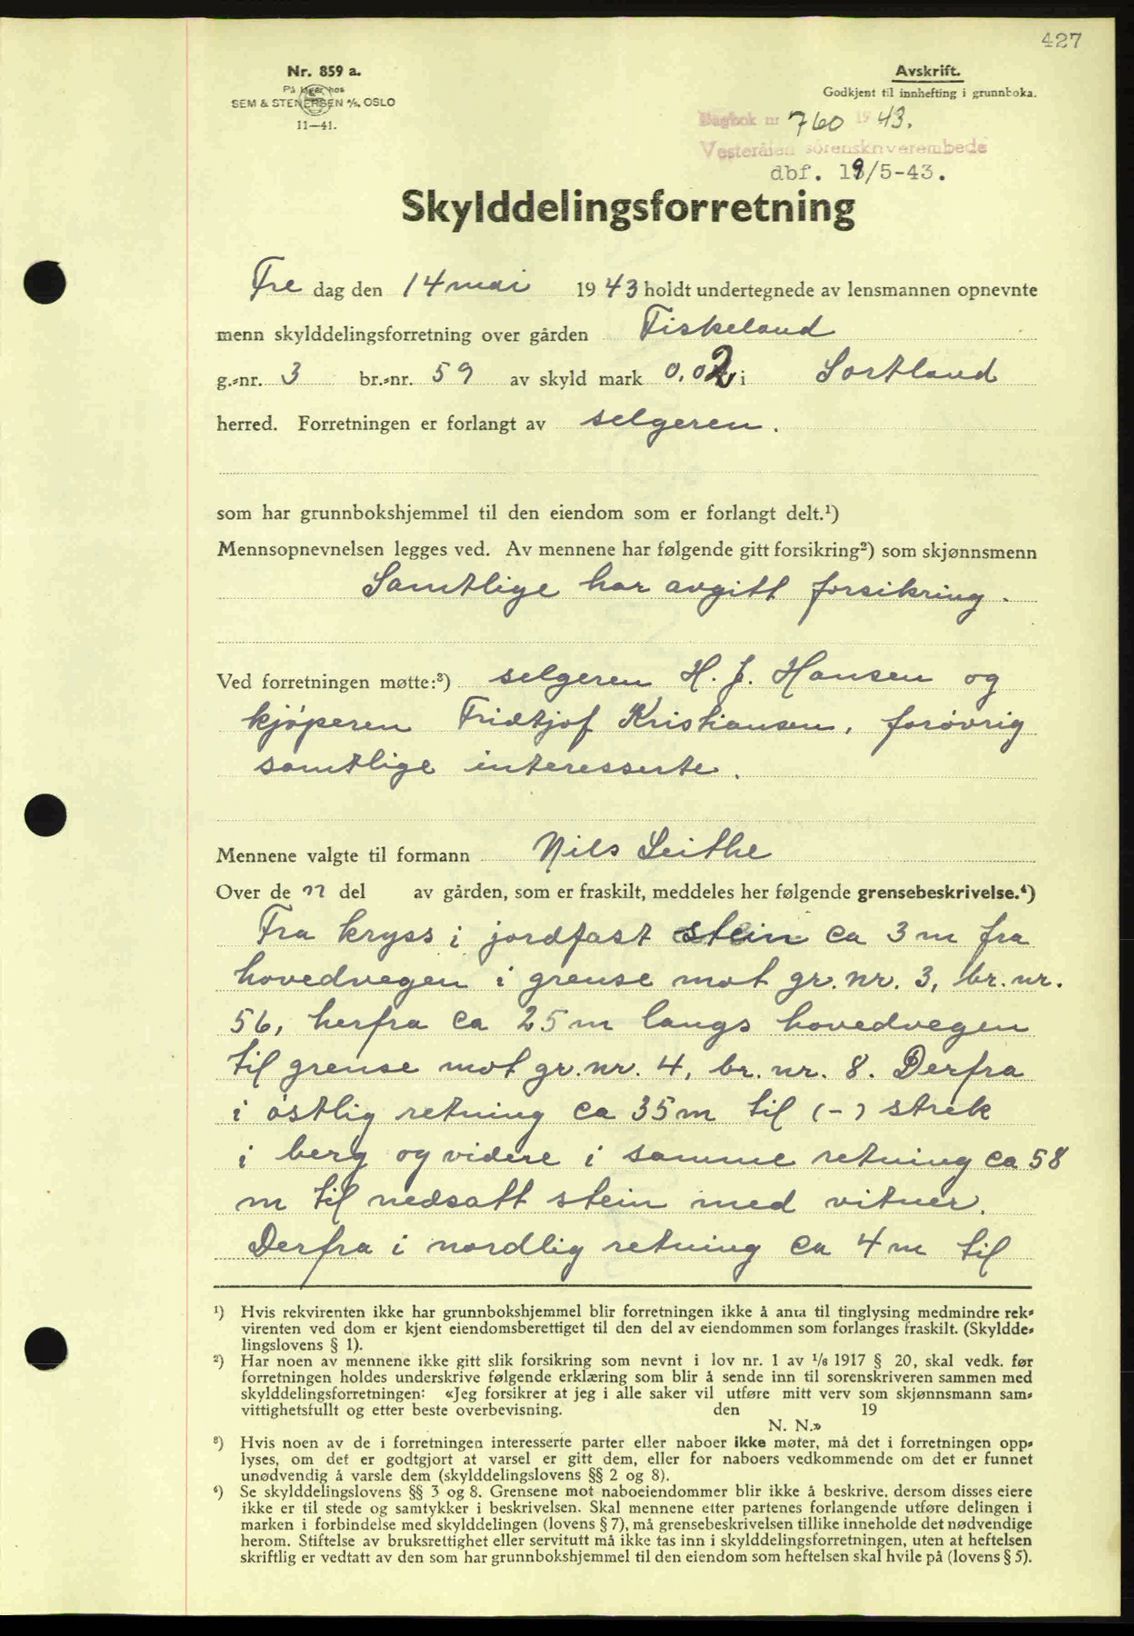 427
Nr. 859 a.
På lager hos
SEM & STENERSEN A/S, OSLO
11—41.
Avskrift.
Godkjent til innhefting i grunnboka.
Dagbok nr 760 1943.
Vesterålen sorenskriverembede
dbf. 19/5-43.
Skylddelingsforretning
Fre dag den 14 mai 1943 holdt undertegnede av lensmannen opnevnte
menn skylddelingsforretning over gården Fiskeland
g.-nr. 3 br.-nr. 59 av skyld mark 0,02 i Sortland
herred. Forretningen er forlangt av selgeren.
som har grunnbokshjemmel til den eiendom som er forlangt delt.¹)
Mennsopnevnelsen legges ved. Av mennene har følgende gitt forsikring²) som skjønnsmenn
Samtlige har avgitt forsikring.
Ved forretningen møtte:³) selgeren H. J. Hansen og
kjøperen Fridtjof Kristiansen, forøvrig
samtlige interesserte.
Mennene valgte til formann Nils Leithe
Over de n del av gården, som er fraskilt, meddeles her følgende grensebeskrivelse.⁴)
Fra kryss i jordfast stein ca 3 m fra
hovedvegen i grense mot gr. nr. 3, br. nr.
56, herfra ca 25 m langs hovedvegen
til grense mot gr. nr. 4, br. nr. 8. Derfra
i østlig retning ca 35 m til (-) strek
i berg og videre i samme retning ca 58
m til nedsatt stein med vitner.
Derfra i nordlig retning ca 4 m til
¹) Hvis rekvirenten ikke har grunnbokshjemmel blir forretningen ikke å anta til tinglysing medmindre rek-
virenten ved dom er kjent eiendomsberettiget til den del av eiendommen som forlanges fraskilt. (Skyldde-
lingslovens § 1).
²) Har noen av mennene ikke gitt slik forsikring som nevnt i lov nr. 1 av 1/6 1917 § 20, skal vedk. før
forretningen holdes underskrive følgende erklæring som blir å sende inn til sorenskriveren sammen med
skylddelingsforretningen: «Jeg forsikrer at jeg i alle saker vil utføre mitt verv som skjønnsmann sam-
vittighetsfullt og etter beste overbevisning. den 19
N. N.»
³) Hvis noen av de i forretningen interesserte parter eller naboer ikke møter, må det i forretningen opp-
lyses, om det er godtgjort at varsel er gitt dem, eller for naboers vedkommende om det er funnet
unødvendig å varsle dem (skylddelingslovens §§ 2 og 8).
⁴) Se skylddelingslovens §§ 3 og 8. Grensene mot naboeiendommer blir ikke å beskrive, dersom disses eiere
ikke er til stede og samtykker i beskrivelsen. Skal mennene etter partenes forlangende utføre delingen i
marken i forbindelse med skylddelingen (lovens § 7), må grensebeskrivelsen tillike inneholde det nødvendige
herom. Stiftelse av bruksrettighet eller servitutt må ikke tas inn i skylddelingsforretningen, uten at heftelsen
skriftlig er vedtatt av den som har grunnbokshjemmel til den eiendom som heftelsen skal hvile på (lovens § 5).